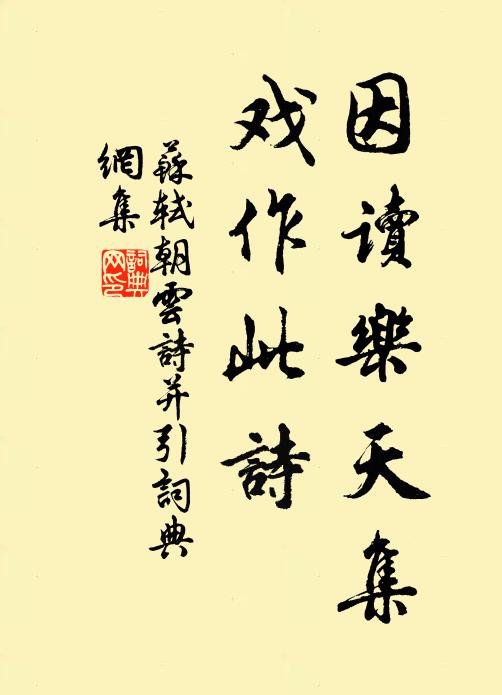 因讀樂天集
戏作此詩
蘇軾朝雲詩并引詞典
網集
詞典
网印